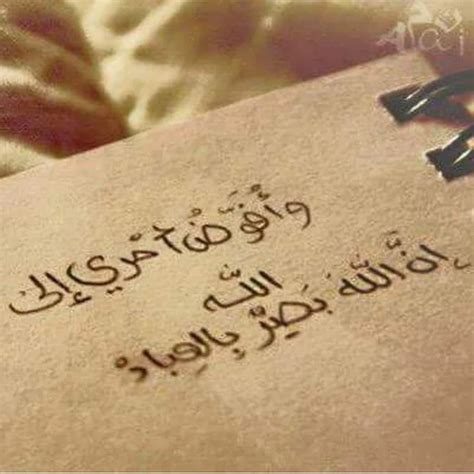 وَأُفَوِّضُ أَمْرِي إِلَى
اللَّه
إِنَّ اللَّهَ بَصِيْرٌ بِالعِبَادْ